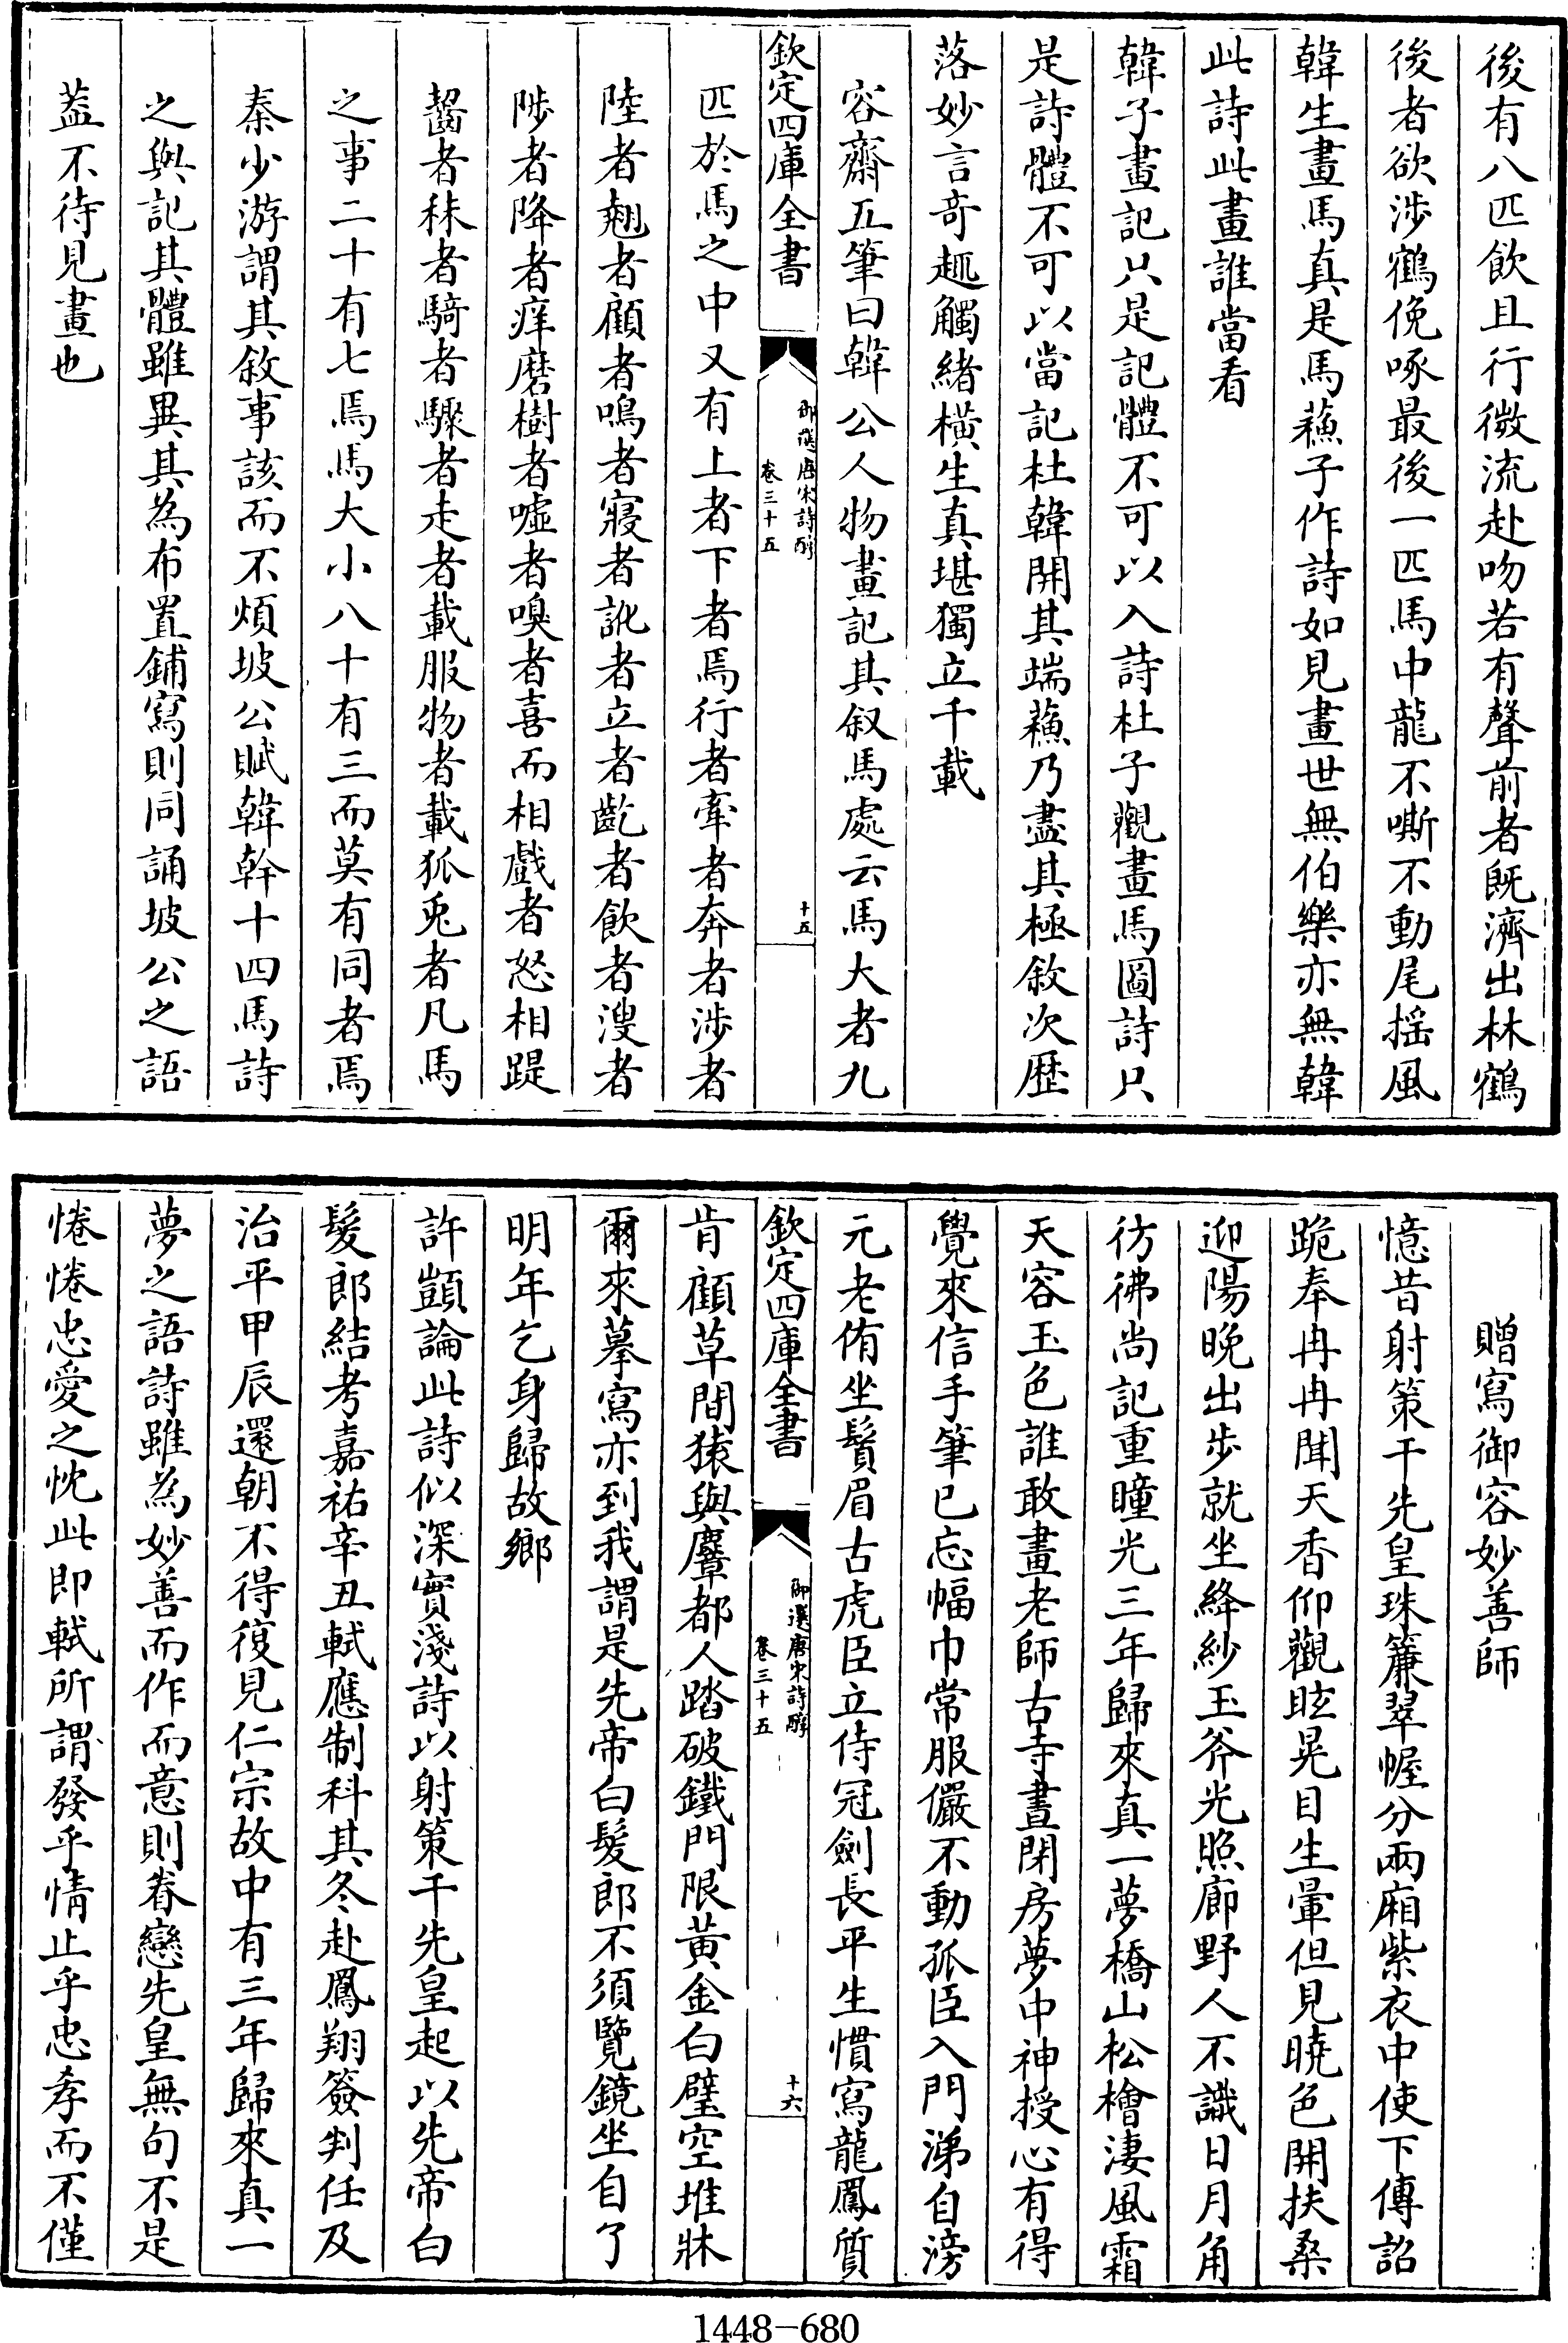 後有八匹飲且行微流赴吻若有聲前者既濟出林鶴
後者欲涉鶴俛啄最後一匹馬中龍不嘶不動尾揺風
韓生畫馬真是馬蘓子作詩如見畫世無伯樂亦無韓
此詩此畫誰當看
韓子畫記只是記體不可以入詩杜子觀畫馬圖詩只
是詩體不可以當記杜韓開其端蘓乃盡其極敘次歴
落妙言奇趣觸緒橫生真堪獨立千載
容齋五筆曰韓公人物畫記其叙馬處云馬大者九
欽定四庫全書
御選唐宋詩醇
卷三十五
十五
匹於馬之中又有上者下者焉行者牽者奔者涉者
陸者翹者顧者鳴者寢者訛者立者齕者飲者溲者
陟者降者痒磨樹者噓者嗅者喜而相戲者怒相踶
齧者秣者騎者驟者走者載服物者載狐兎者凡馬
之事二十有七焉馬大小八十有三而莫有同者焉
秦少游謂其敘事該而不煩坡公賦韓幹十四馬詩
之與記其體雖異其為布置鋪寫則同誦坡公之語
蓋不待見畫也
贈寫御容妙善師
憶昔射策干先皇珠簾翠幄分兩廂紫衣中使下傳詔
跪奉冉冉聞天香仰觀眩晃目生暈但見曉色開扶桑
迎陽晚出步就坐絳紗玉斧光照廊野人不識日月角
彷彿尚記重瞳光三年歸來真一夢橋山松檜淒風霜
天容玉色誰敢畫老師古寺晝閉房夢中神授心有得
覺來信手筆已忘幅巾常服儼不動孤臣入門涕自滂
元老侑坐鬚眉古虎臣立侍冠劍長平生慣寫龍鳳質
欽定四庫全書
御選唐宋詩醇
卷三十五
十六
肯顧草間猿與麞都人踏破鐵門限黃金白璧空堆牀
爾來摹寫亦到我謂是先帝白髮郎不須覽鏡坐自了
明年乞身歸故鄉
許顗論此詩似深實淺詩以射策干先皇起以先帝白
髮郎結考嘉祐辛丑軾應制科其冬赴鳳翔簽判任及
治平甲辰還朝不得復見仁宗故中有三年歸來真一
夢之語詩雖為妙善而作而意則眷戀先皇無句不是
惓惓忠愛之忱此即軾所謂發乎情止乎忠孝而不僅
1448-680